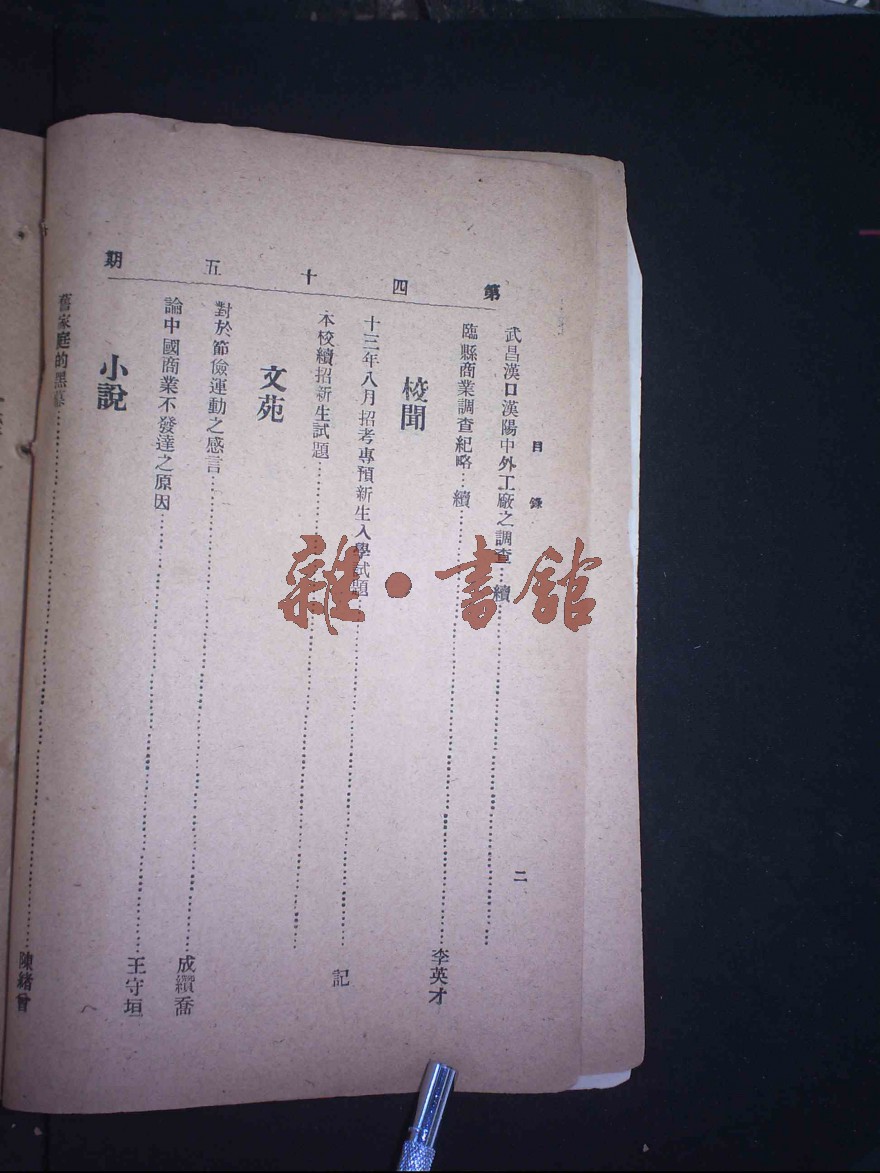 第四十五期
目錄
二
武昌漢口漢陽中外工廠之調查…續
臨縣商業調查紀略…續 李英才
校聞
十三年八月招考專預新生入學試題 記
本校續招新生試題
文苑
對於節儉運動之感言 成纘喬
論中國商業不發達之原因 王守垣
小說
舊家庭的黑幕 陳緒曾
雜·書館